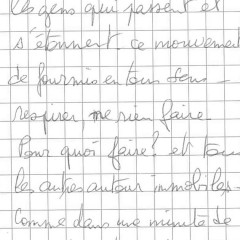 les gens qui passent et
s'étonnent ce mouvement
de fourmis en tous sens -
respirer, ne rien faire.
Pour quoi faire? et tou
les autres autour immobiles -
comme dans une minute de